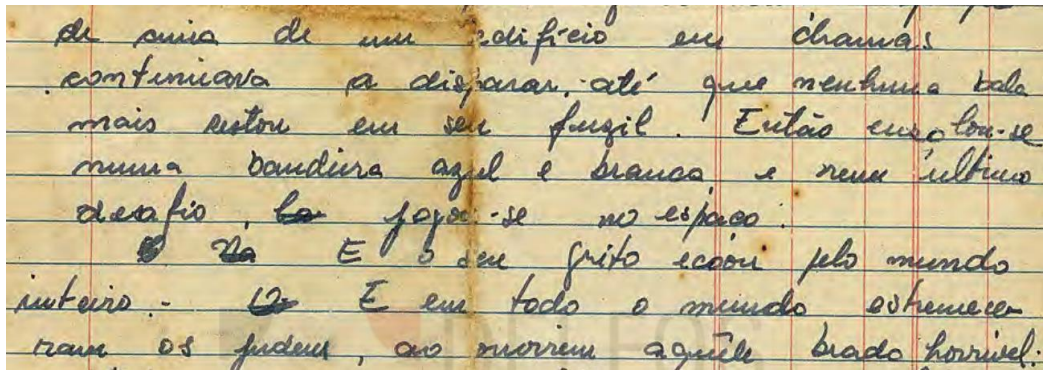 de cima de um edifício em chamas
continuava a disparar, até que nenhuma bala
mais restou em seu fuzil. Então enrolou-se
numa bandeira azul e branca, e num último
desafio, jogou-se no espaço.
E o seu grito ecoou pelo mundo
inteiro. E em todo o mundo estremece-
ram os judeus, ao ouvirem aquêle brado horrível.
DELFOS